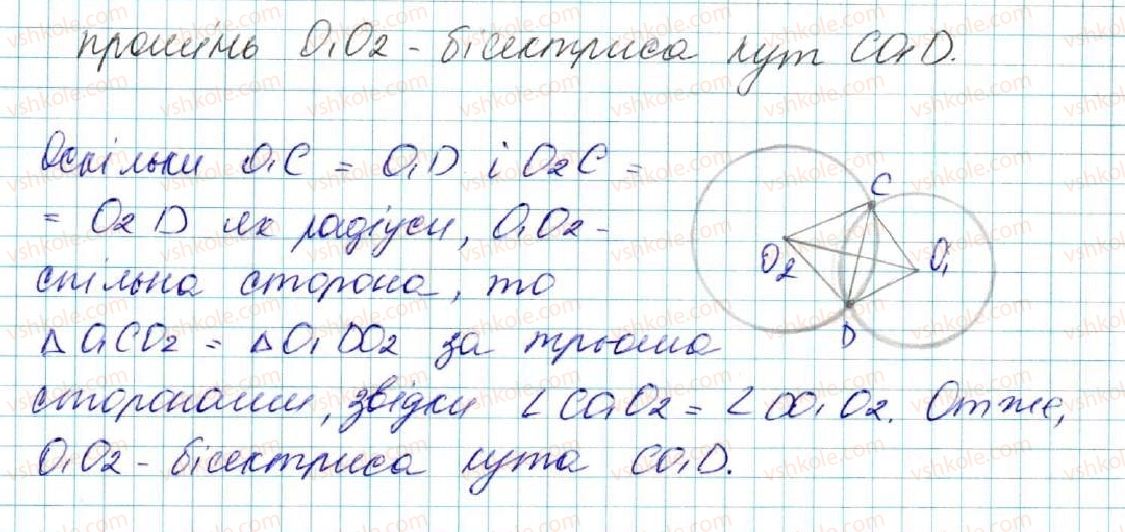 промінь O₁O₂ - бісектриса кут CO₁D.
Оскільки O₁C = O₁D і O₂C =
= O₂D як радіуси, O₁O₂ -
спільна сторона, то
△O₁CO₂ = △O₁DO₂ за трьома
сторонами, звідки ∠CO₁O₂ = ∠DO₁O₂. Отже,
O₁O₂ - бісектриса кута CO₁D.
C
O₂
O₁
D
vshkole.com